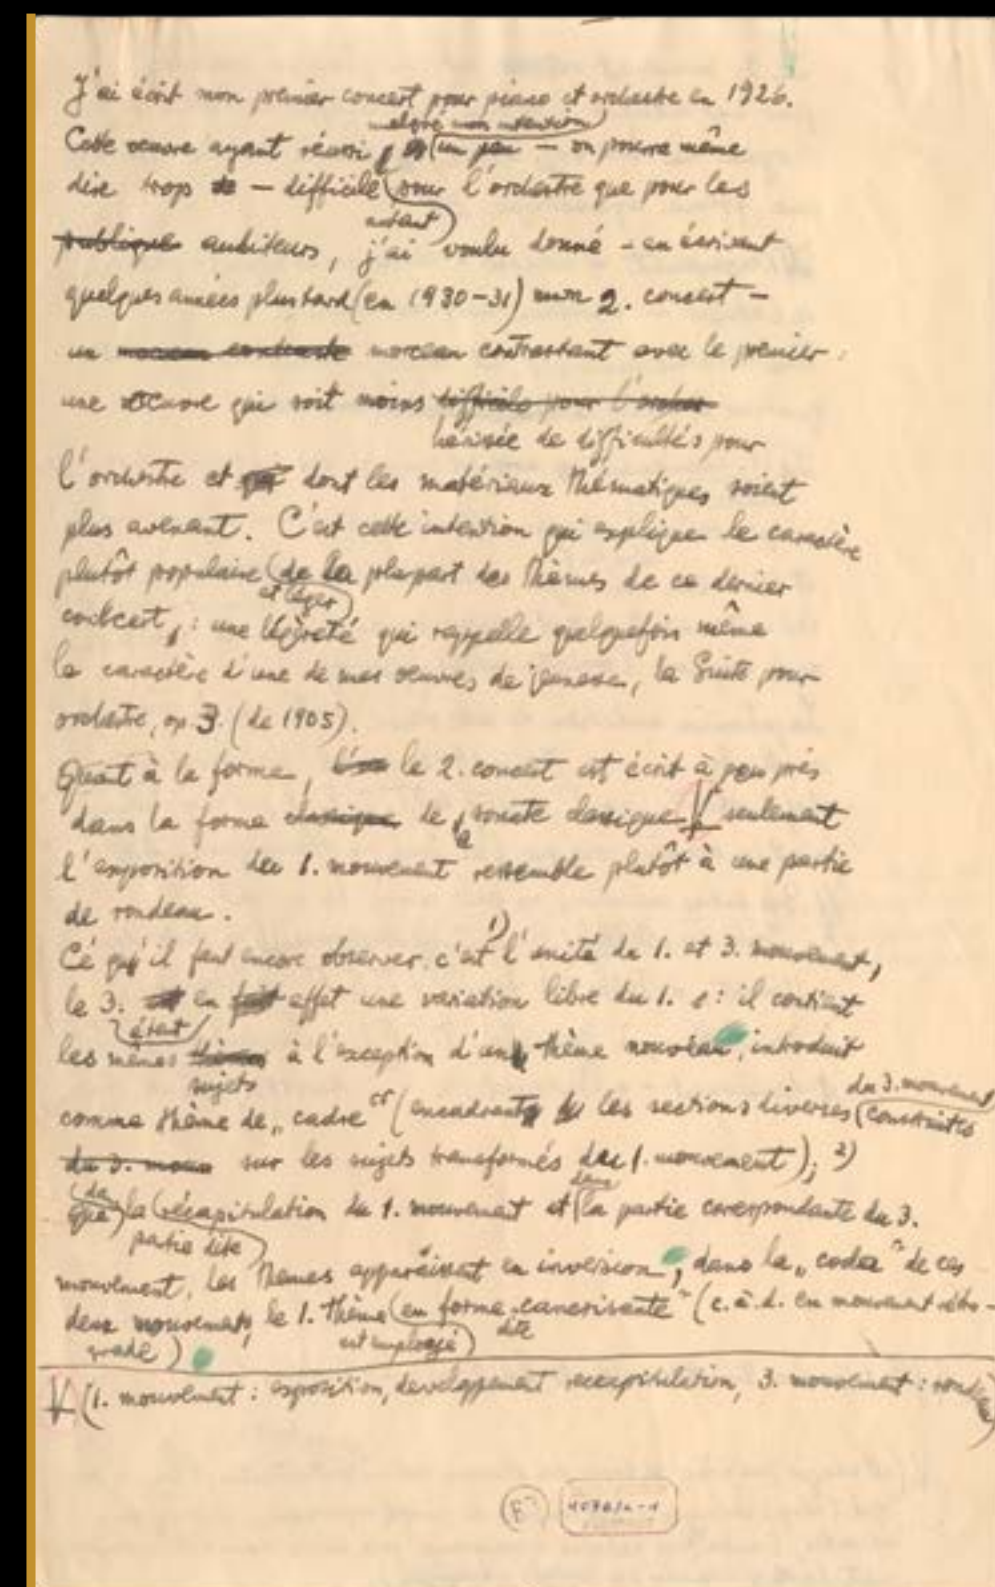 J'ai écrit mon premier concert pour piano et orchestre en 1926.
malgré mon intention
Cette oeuvre ayant réussi un peu – on pourra même
dire trop – difficile pour l'orchestre que pour les
autant
publique auditeurs, j'ai voulu donné – en écrivant
quelques années plus tard (en 1930–31) mon 2. concert –
un morceau contraste morceau contrastant avec le premier :
une oeuvre qui soit moins difficile pour l'orches
hérissée de difficultés pour
l'orchestre et dont les matériaux thématiques soient
plus avenant. C'est cette intention qui explique le caractère
plutôt populaire de la plupart des thèmes de ce dernier
et léger
concert, : une légèreté qui rappelle quelquefois même
le caractère d'une de mes oeuvres de jeunesse, la Suite pour
orchestre, op 3. (de 1905).
Quant à la forme, le 2. concert est écrit à peu près
dans la forme classique de la sonate classique V seulement
l'exposition du 1. mouvement ressemble plutôt à une partie
de rondeau.
Ce qu'il faut encore observer, c'est 1) l'unité du 1. et 3. mouvement,
le 3. en fait effet une variation libre du 1. : il contient
étant
les mêmes thèmes à l'exception d'un thème nouveau, introduit
sujets
du 3. mouvement
comme thème de „cadre“ (encadrant les sections diverses construites
du 3. mouv sur les sujets transformés du 1. mouvement); 2)
de dans
que la récapitulation du 1. mouvement et la partie correspondante du 3.
partie dite
mouvement, les thèmes apparaissent en inversion, dans la „coda“ de ces
deux mouvements, le 1. thème en forme „cancrisante“ (c. à. d. en mouvement rétro-
est employé dite
grade)
V (1. mouvement : exposition, developpement recapitulation, 3. mouvement : rondeau)